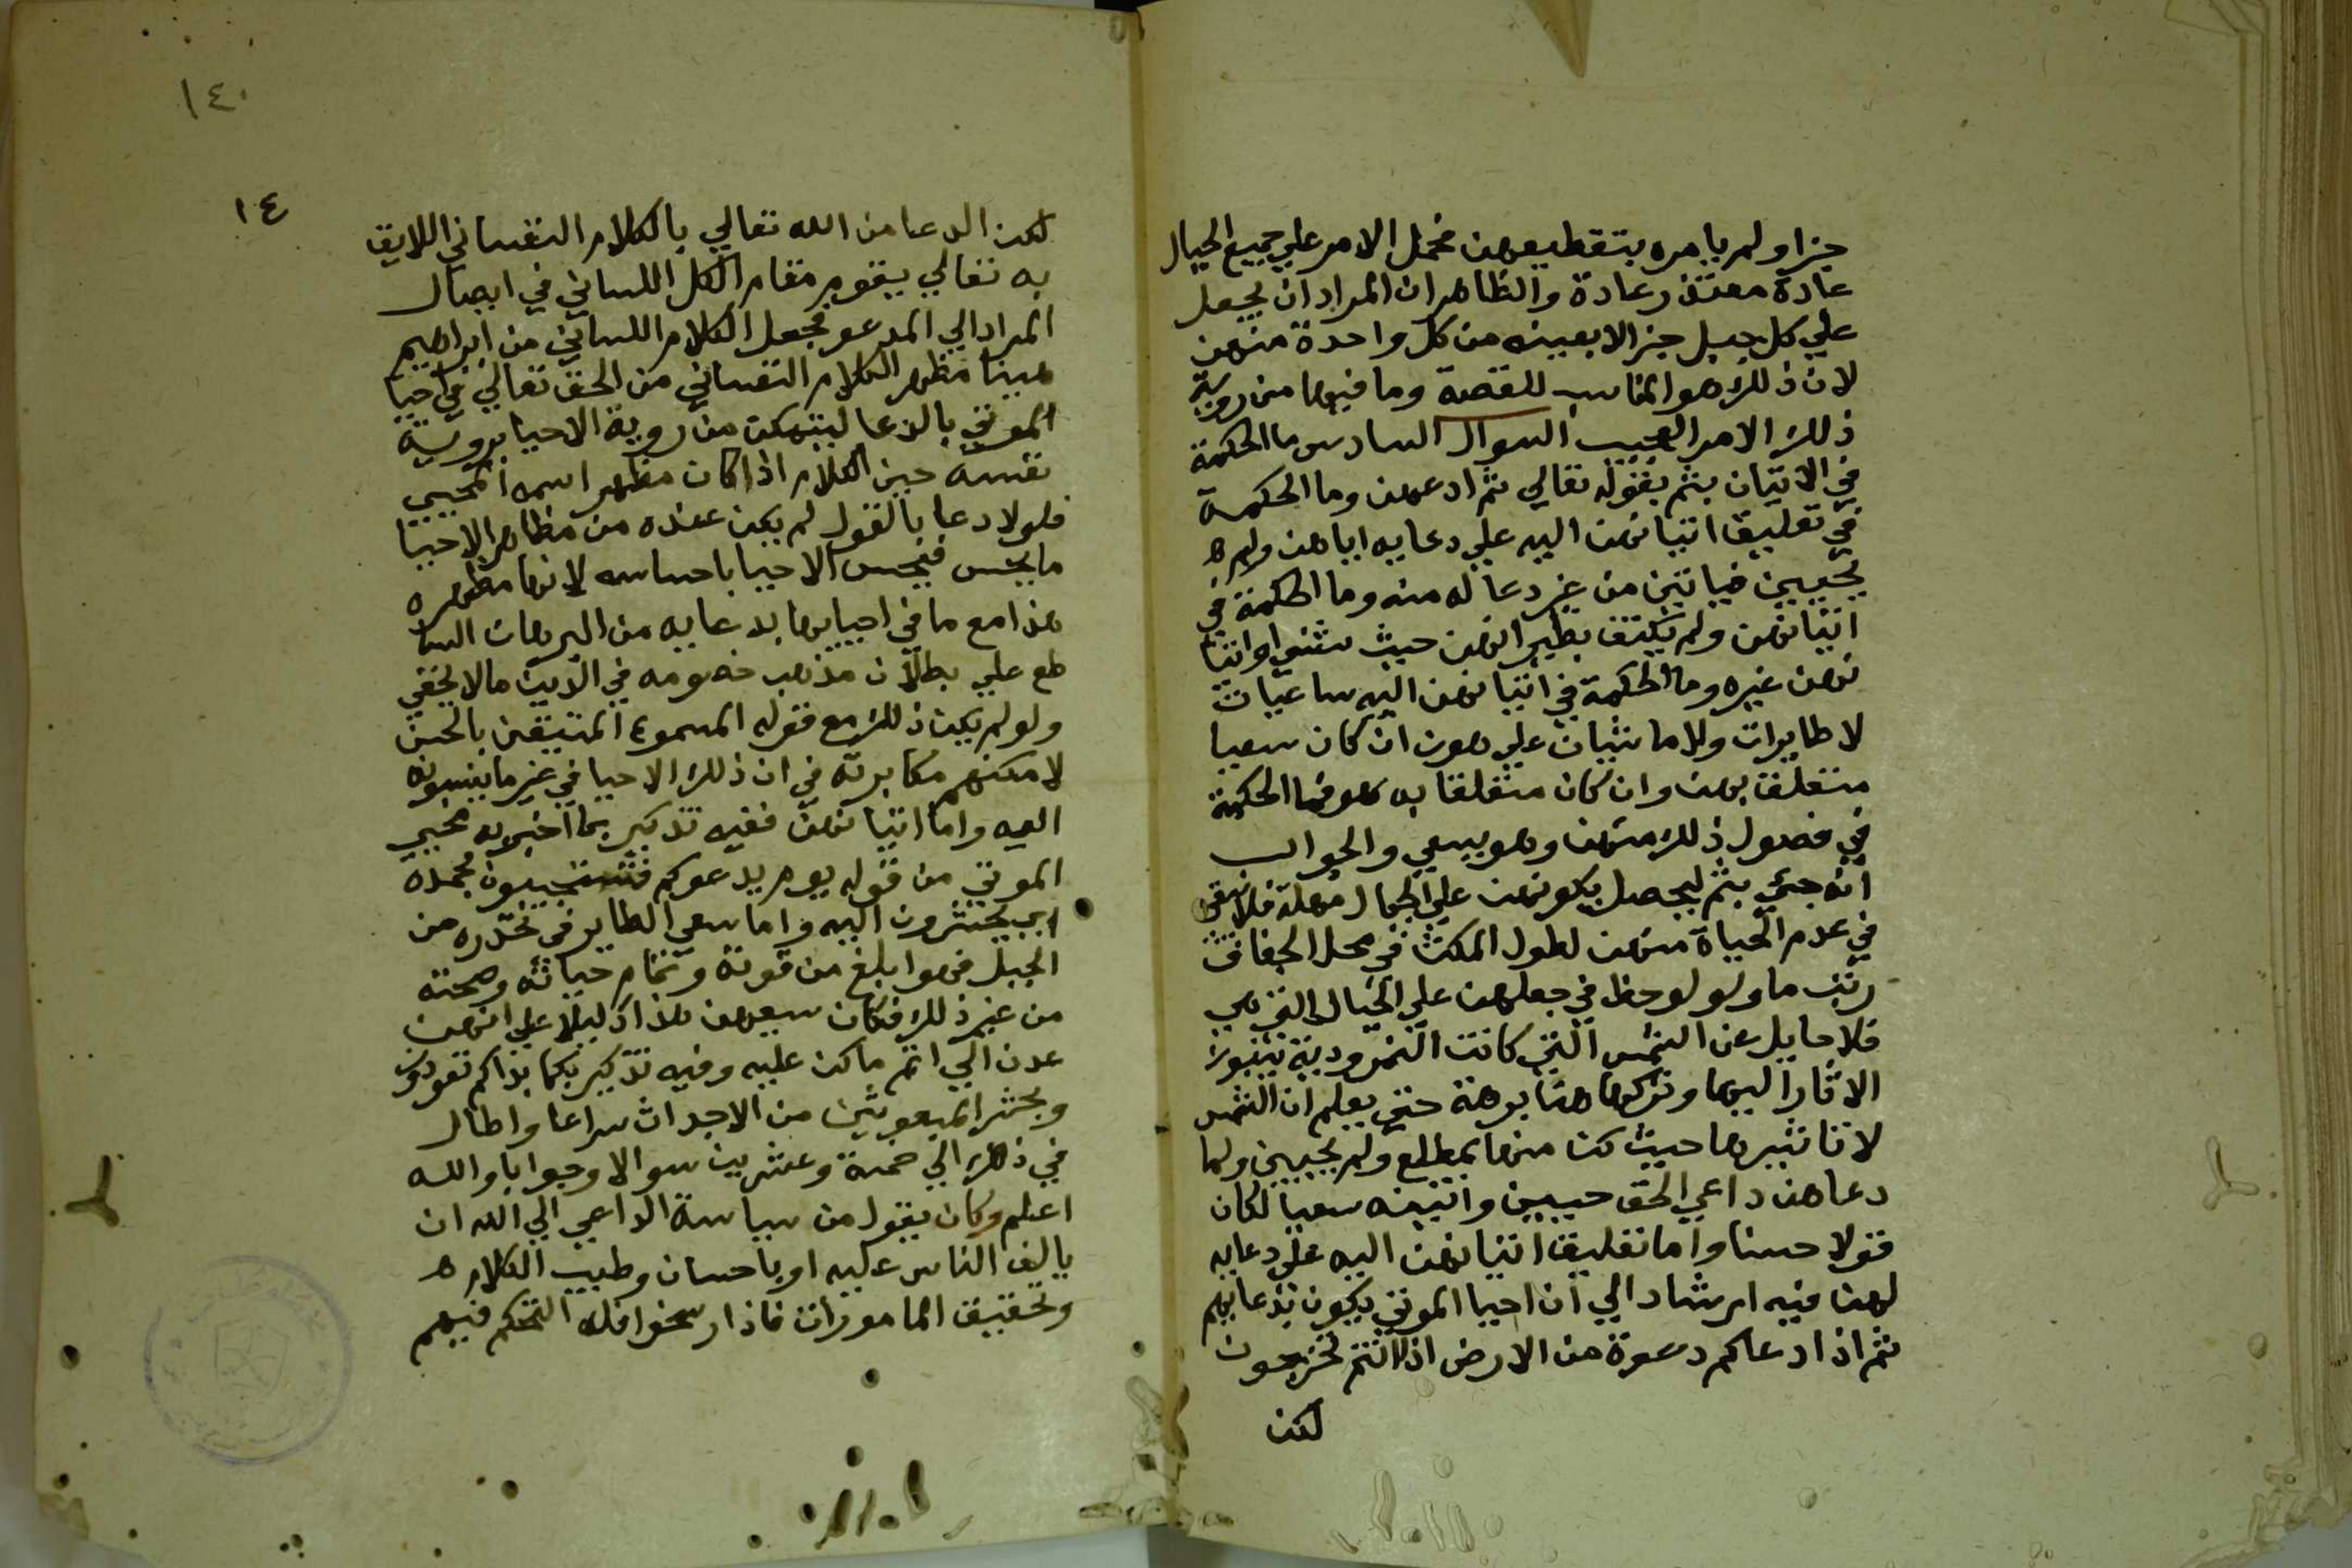 جزا ولم يامره بتقطيعهن فحمل الامر علي جميع الجبال
عادة معتذر عادة والظاهر ان المراد ان يجعل
علي كل جبل جزا لا بعينه من كل واحدة منهن
لان ذلك هو المناسب للقصة وما فيها من روية
ذلك الامر العجيب السوال السادس ما الحكمة
في الاتيان بثم بقوله تعالي ثم ادعهن وما الحكمة
في تعليق اتيانهن اليه علي دعايه اياهن ولم
يحيين فياتين من غير دعا له منه وما الحكمة في
اتيانهن ولم يكتف بطيرانهن حيث شئن او اتيا
نهن غيره وما الحكمة في اتيانهن اليه ساعيات
لا طايرات ولا ماشيات علي هون ان كان سعيا
متعلق بهن وان كان متعلقا به فما الحكمة
في حصول ذلك منهن وهو يسعي والجواب
انه جيء بثم ليحصل بكونهن علي الجبال مهلة فلا يبقي
في عدم الحياة منهن لطول المكث في محل الجفاف
ريب ما ولو لوحظ في جعلهن علي الجبال التي هي
فلا حايل عن الشمس التي كانت النمرودية ينسبون
الاثار اليها وتركها هنا برهة حتي يعلم ان الشمس
لا تاثير لها حيث كن منها بمطلع ولم يحيين ولما
دعاهن داعي الحق حيين واتينه سعيا لكان
قولا حسنا واما تعليق اتيانهن اليه علي دعايه
لهن فيه ارشاد الي ان احيا الموتي يكون بدعايهم
ثم اذا دعاكم دعوة من الارض اذا انتم تخرجون
لكن
١٤٠
١٤
لكن الدعا من الله تعالي بالكلام النفساني اللايق
به تعالي يقوم مقام الكل اللساني في ايصال
المراد الي المدعو فجعل الكلام اللساني من ابراهيم
هينا مظهر الكلام النفساني من الحق تعالي في احيا
الموتي بالدعا ليتمكن من روية الاحيا بروية
نفسه حين الكلام اذا كان مظهر اسمه المحيي
فلولا دعا بالقول لم يكن عنده من مظاهر الاحيا
ما يحس فيحس الاحيا باحساسه لانها مظهره
هذا مع ما في احيايها بدعايه من البرهان السا
طع علي بطلان مذهب خصومه في الاية ما لا يخفي
ولو لم يكن ذلك مع قوله المسموع المتيقن بالحس
لامكنهم مكابرته في ان ذلك الاحيا في غير ما ينسبونه
اليه واما اتيانهن ففيه تذكير بما اخبر به محيي
الموتي من قوله يوم يدعوكم فتستجيبون بحمده
اي يحشرون اليه واما سعي الطاير في تحدره من
الجبل فهو ابلغ من قوته وتمام حياته وصحته
من غير ذلك فكان سعيهن هذا دليلا علي انهن
عدن الي اتم ما كن عليه وفيه تذكير بكما بداكم تعودون
وبحشر المبعوثين من الاجداث سراعا واطال
في ذلك الي خمسة وعشرين سوالا وجوابا والله
اعلم وكان يقول من سياسة الداعي الي الله ان
يالف الناس عليه او باحسان وطيب الكلام
وتخفيف المامورات فاذا رسخوا فله التحكم فيهم